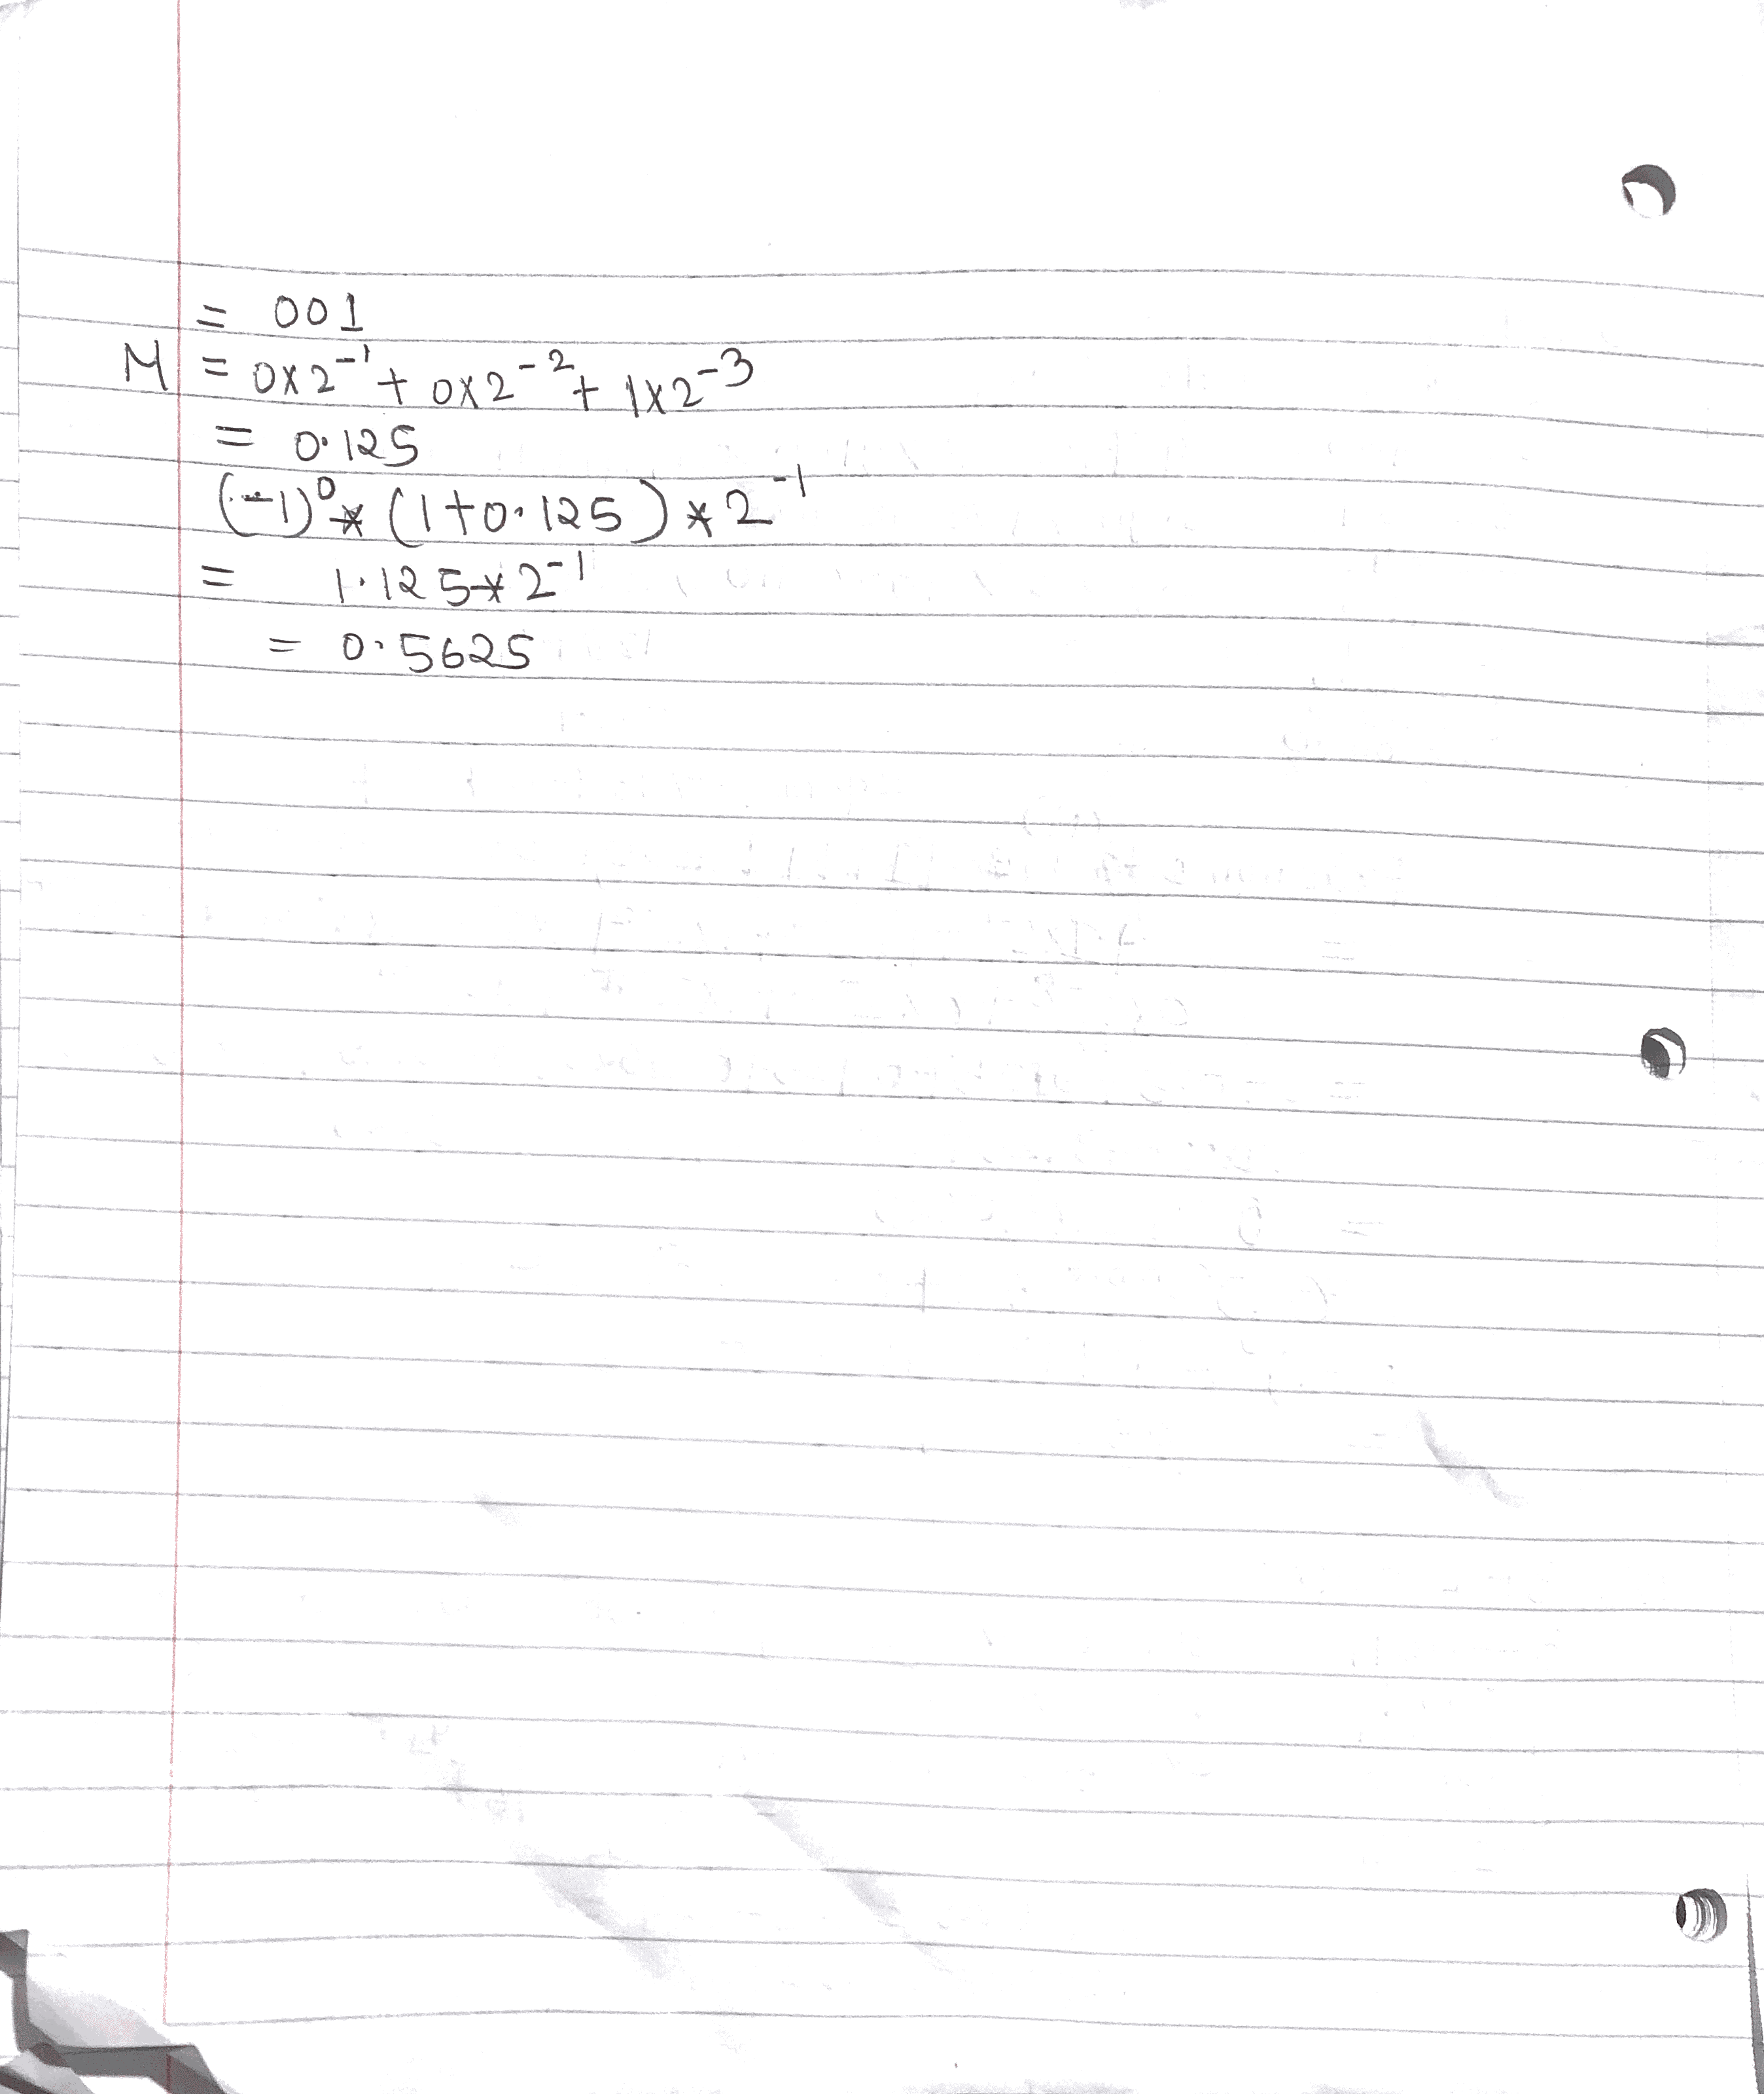 = 001
M = 0x2⁻¹ + 0x2⁻² + 1x2⁻³
= 0.125
(-1)⁰ * (1+0.125) * 2⁻¹
= 1.125*2⁻¹
= 0.5625